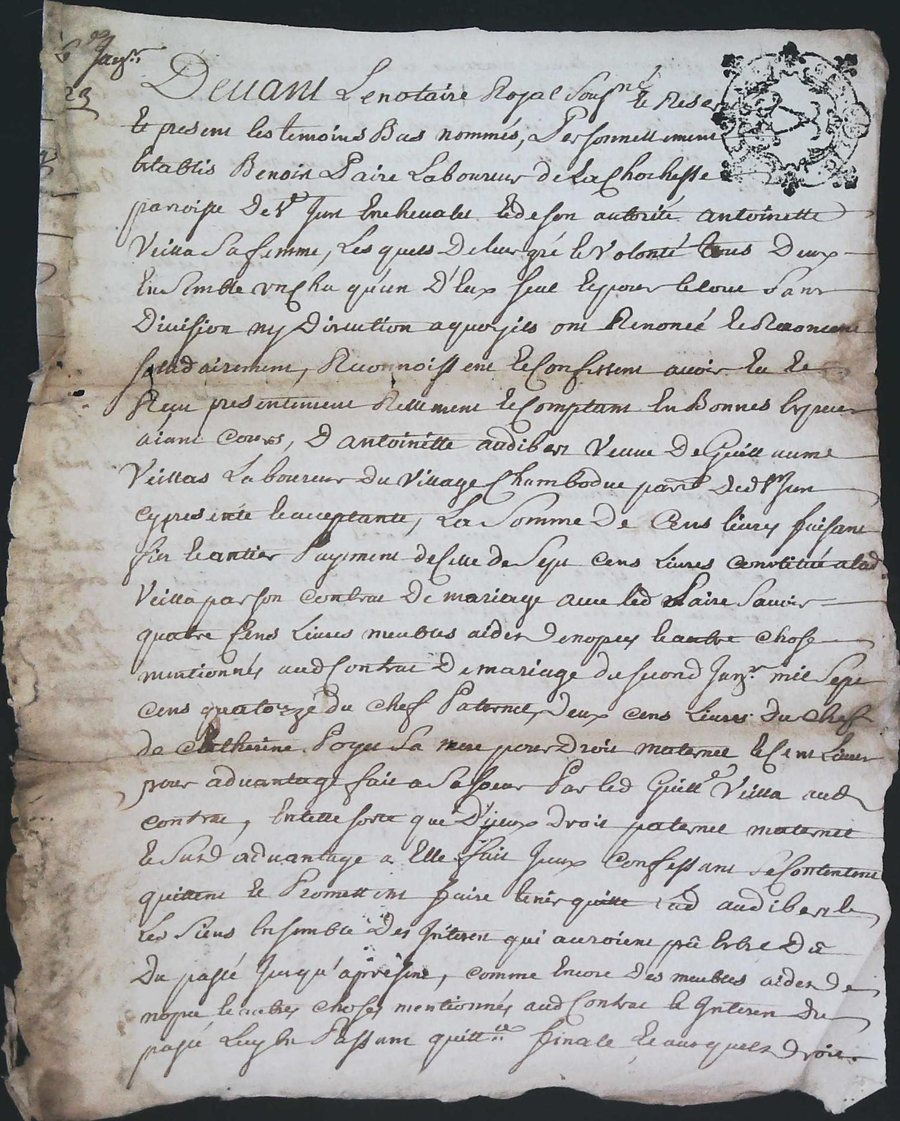 6e Janvr
23
Devant Le notaire Royal Sousné et Rese
Et present les temoins Bas nommés, Personnellement
Etablis Benoit Paire Laboureur de La Chochette
paroisse De St Jun En chevalet et de son autorité antoinette
Veilla Sa femme, Les quels De leur gré et Volonté tous Deux
Ensemble un Cha qu'un D'Eux seul et pour le tout Sans
Division ny Discution a quoy ils ont Renoncé et Renoncent
solidairement, Reconnoissent et Confessent avoir Eu et
Reçu presentement Réellement et Comptant En Bonnes Especes
aiant Cours, D antoinette audibert Veuve De Guillaume
Veillas Laboureur Du Village Chambodue parse De dt St Jun
Cy presente et acceptante, La Somme De Cens Livres faisant
fin et antier Payment de Celle De Sept cens Livres constitué a lad
Veilla par son contrac De mariage avec led Paire Savoir
quatre Cens Livres meubles aides De nopces et autre chose
mentionnés aud Contrac De mariage du second Janr mil Sept
cens quatorze du Chef Paternel, Deux cens Livres Du Chef
De Catherine Poyet Sa mere pour Droit maternel et Cent Livres
pour advantage fait a Sa soeur Par led Guille Veilla aud
contrac, En telle sorte que D'yeux Droit paternel maternel
et Surd advantage a Elle fait Iceux Confessant Se Contentent
quittent et Promettent faire tenir quitte Lad audibert et
Les Siens Ensemble Des Interets qui auroient pû Estre Dû
Du passé Jusqu'apresent, comme Encore Des meubles aides de
nopce et autres choses mentionnés aud Contrac et Interets Du
passé Passant quittce finale et aus quels Droit